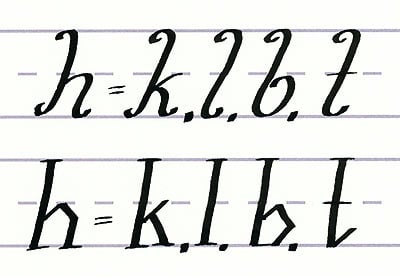 h = k. l. b. t
h = k. l. b. t